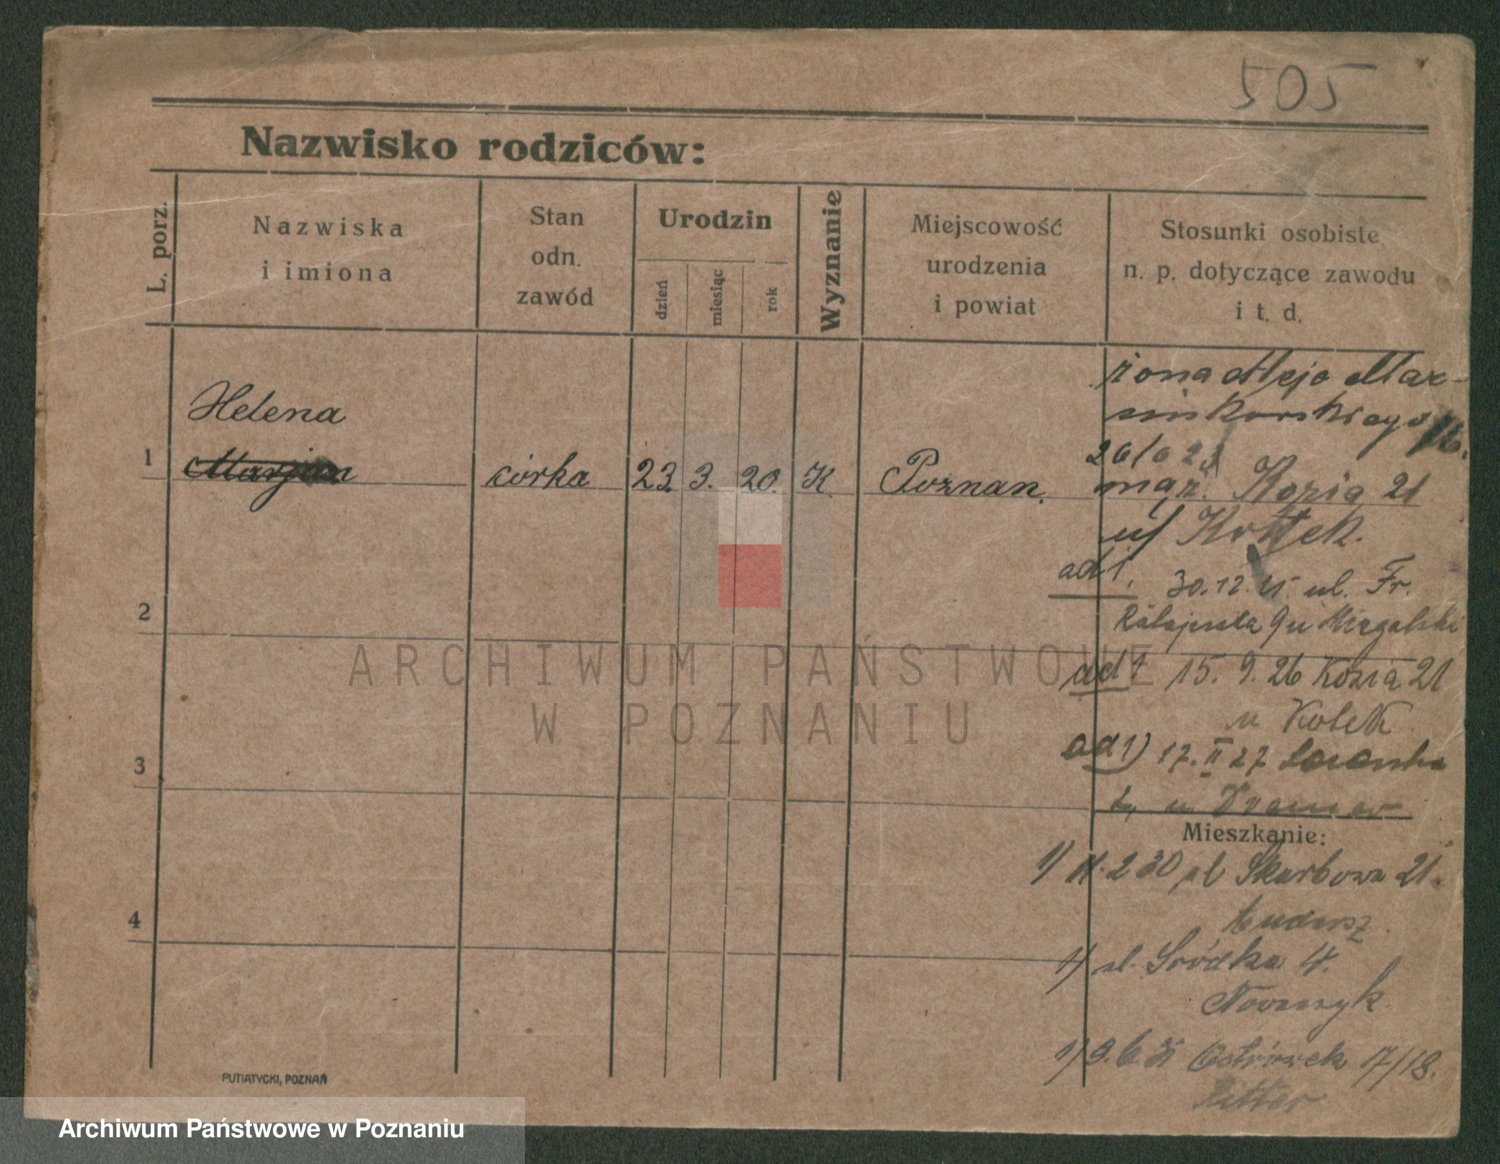 505
Nazwisko rodziców:
L. porz.
Nazwiska
i imiona
Stan
odn.
zawód
Urodzin
dzień
miesiąc
rok
Wyznanie
Miejscowość
urodzenia
i powiat
Stosunki osobiste
n. p. dotyczące zawodu
i t. d.
Helena
1 Marjan córka 23. 3. 20. K. Poznan.
żona
mąż. Kozia 21
u/
ad 1. 30.12. ul. Fr.
Ratajczaka 9 u
2
ad 1 15. 9. 26 Kozia 21
u Kotek
ad 1) 17. II 27
u
3
Mieszkanie:
1) 11. 2 30 pl Skarbowa 21.
4
1) ul. Śródka 4.
Nowaczyk
1) 9. 6. 31 Ostrówek 17/18.
Ritter
PUTIATYCKI, POZNAŃ
ARCHIWUM PAŃSTWOWE
W POZNANIU
Archiwum Państwowe w Poznaniu